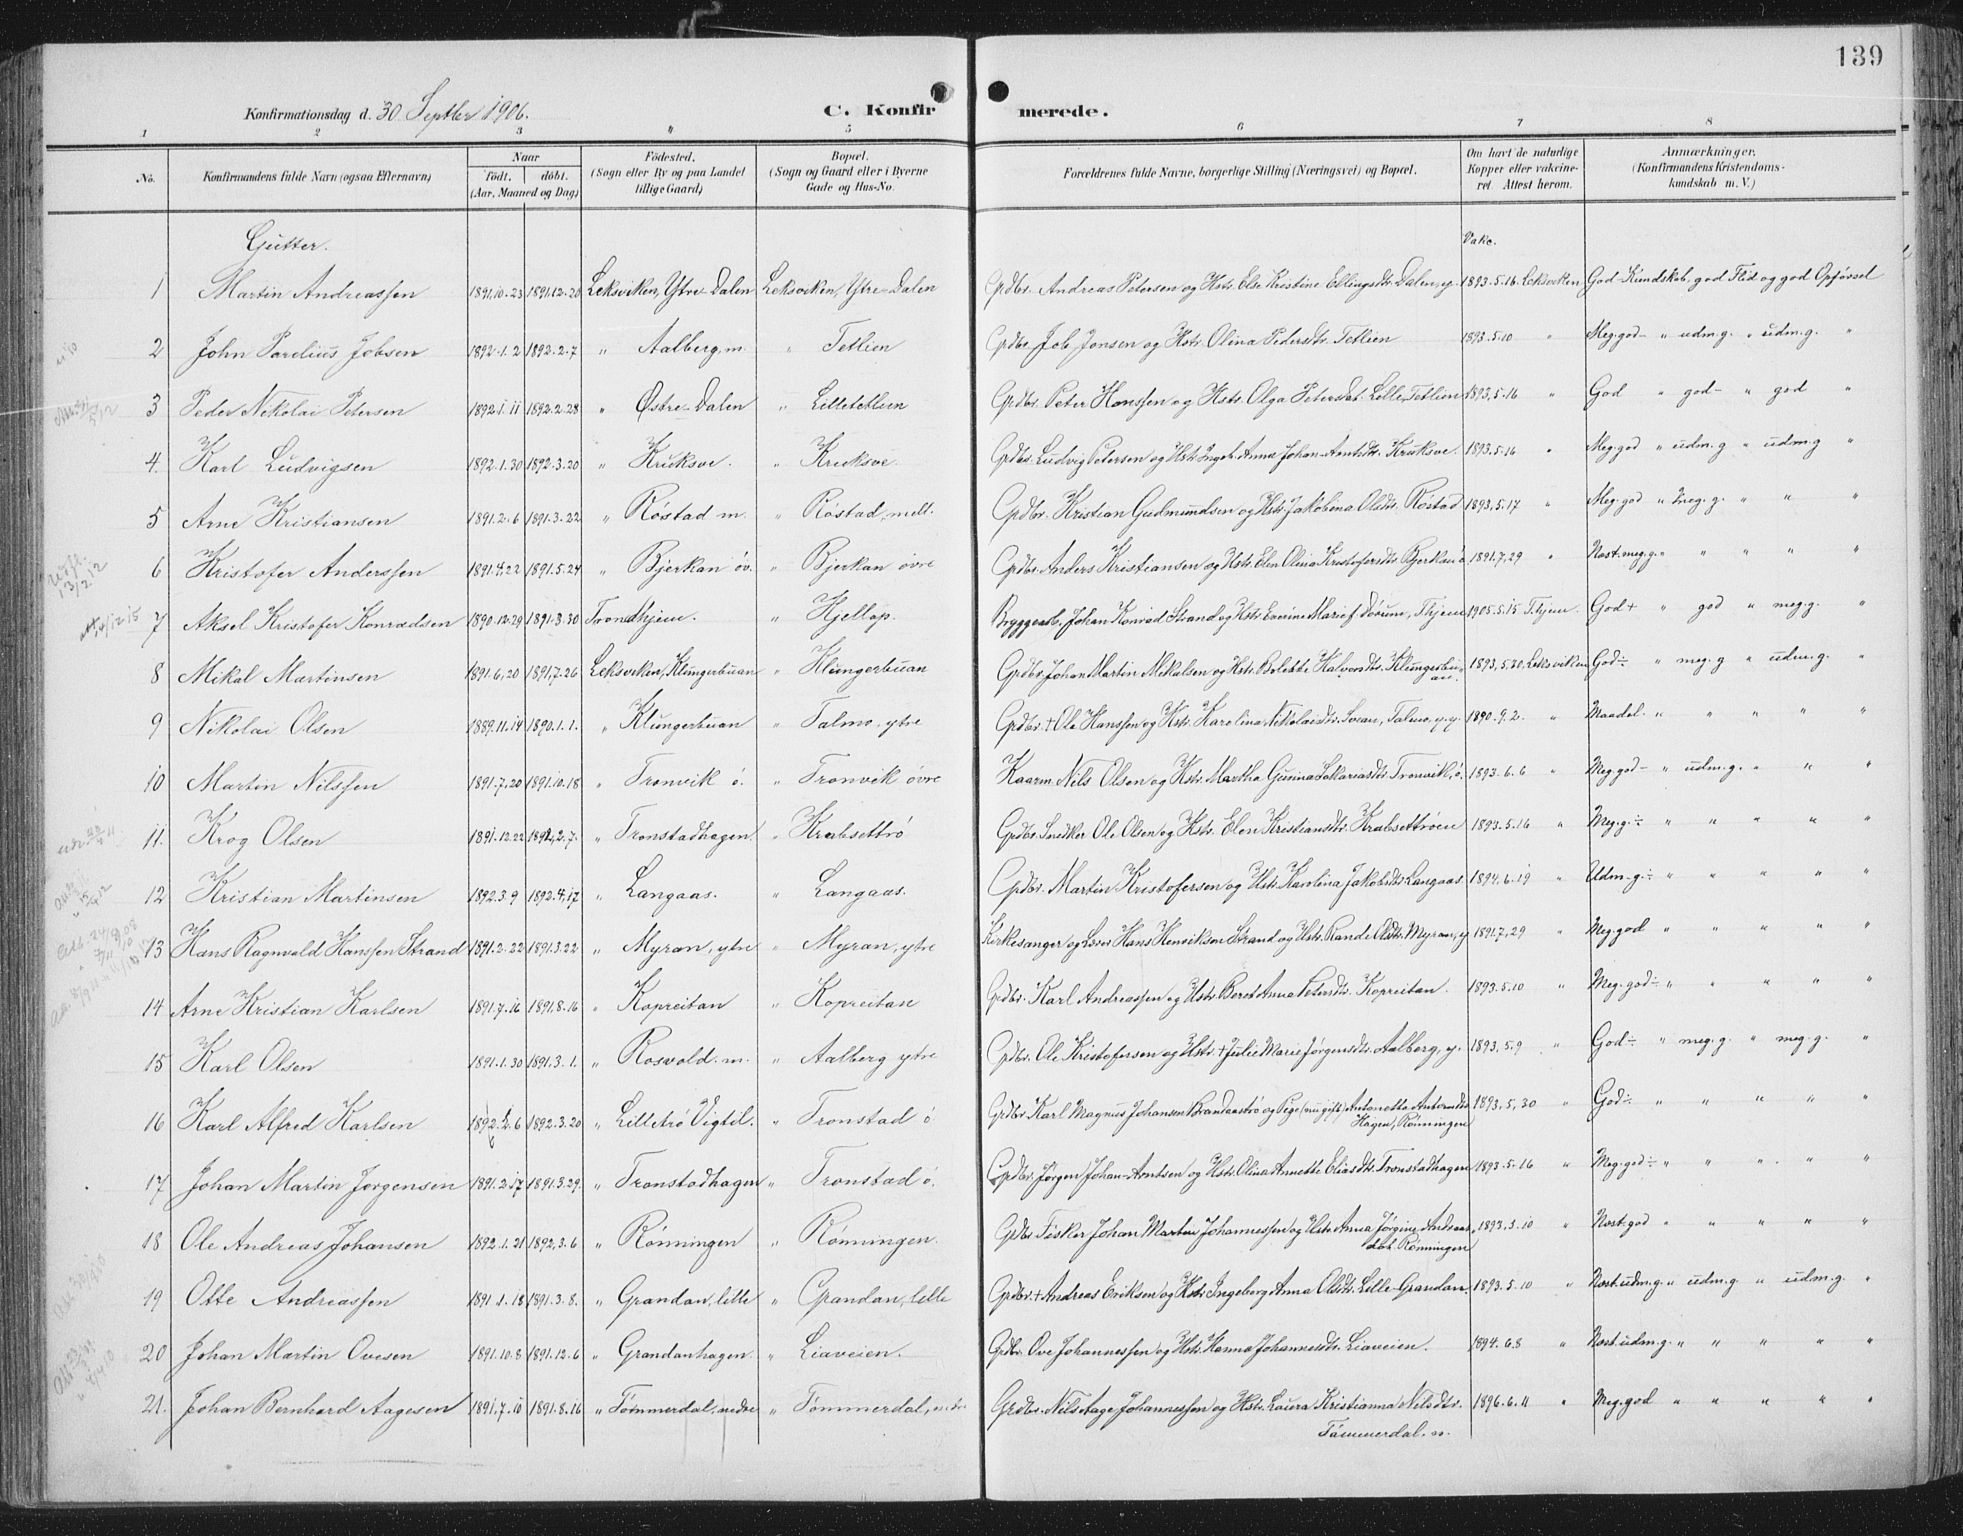 139
Konfirmationsdag d. 30 Septbr 1906.
C. Konfirmerede.
1 2 3 4 5 6 7 8
No. Konfirmandens fulde Navn (ogsaa Efternavn) Naar født. døbt. (Aar, Maaned og Dag) Fødested. (Sogn eller By og paa Landet tillige Gaard) Bopæl. (Sogn og Gaard eller i Byerne Gade og Hus-No. Forældrenes fulde Navne, borgerlige Stilling (Næringsvei) og Bopæl. Om havt de naturlige Kopper eller vakcineret. Attest herom. Anmærkninger. (Konfirmandens Kristendomskundskab m. V.)
Gutter. Vakc.
1 Martin Andreassen 1891.10.23 1891.12.20 Leksviken, Ytre-Dalen Leksviken, Ytre-Dalen Grdbr. Andreas Petersen og Hstr. Else Kristine Ellingsdtr. Dalen, y. 1893.5.16 Leksviken God Kundskab, god Flid og god Opførsel
2 John Parelius Jobsen 1892.1.2 1892.2.7 " Aalberg, m. " Tetlien Grdbr. Job Jonsen og Hstr. Olina Pedersdtr. Tetlien 1893.5.10 " Meg.god- " udm.g. " udm.g. "
3 Peder Nikolai Petersen 1892.1.11 1892.2.28 " Østre-Dalen " Lilletetlien Grdbr. Peter Hanssen og Hstr. Olga Petersdt. Lille-Tetlien 1893.5.16 " God " god- " god "
4. Karl Ludvigsen 1892.1.30 1892.3.20 " Kruksve. " Kruksve. Grdbr. Ludvig Petersen og Hstr. Ingeb. Anna Johan-Arntsdtr. Kruksve. 1893.5.16 " Meg.god " udm.g " udm.g "
5 Arne Kristiansen 1891.2.6 1891.3.22 " Røstad m. " Røstad, mell. Grdbr. Kristian Gudmundsen og Hstr. Jakobina Olsdtr. Røstad 1893.5.17 " Meg.god " meg.g. " " "
6 Kristofer Anderssen 1891.4.22 1891.5.24 " Bjerkan øv. " Bjerkan øvre Grdbr. Anders Kristiansen og Hstr. Elen Olina Kristofersdtr. Bjerkan ø 1891.7.29 " Næst.meg.g. " " " " "
7 Aksel Kristofer Konradsen 1890.12.29 1891.3.30 Trondhjem. " Hjellop. Bryggearb. Johan Konrad Strand og Hstr. Marie f. Dørum, Thjem 1905.5.15 T.hjem. God+ " god " meg.g. "
8 Mikal Martinsen 1891.6.20 1891.7.26 Leksviken, Klungerbuan " Klungerbuan Grdbr. Johan Martin Mikalsen og Hstr. Bolette Halvorsdtr. Klungerbuan. 1893.5.30 Leksviken God÷ " meg.g " udm.g. "
9 Nikolai Olsen 1889.11.14 1890.1.1. " Klungerbuan " Talmo, ytre Grdbr. + Ole Hanssen og Hstr. Karolina Nikolaisdtr. Svean, Talmo, y. 1890.9.2. " Maadel. " " " " "
10 Martin Nilssen 1891.7.20 1891.10.18 " Tronvik ø. " Tronvik øvre Kaarm. Nils Olsen og Hstr. Martha Gurina Sakariasdtr. Tronvik, ø. 1893.6.6 " Meg.god- " udm.g. " " "
11. Krog Olsen 1891.12.22 1892.2.7. " Tronstadhagen " Krabsettrø Grdbr. Snedker Ole Olsen og Hstr. Elen Kristiansdtr. Krabsettrøen 1893.5.16 " Meg.g.÷ " " " " "
12 Kristian Martinsen 1892.3.9 1892.4.17 " Langaas. " Langaas. Grdbr. Martin Kristofersen og Hstr. Karolina Jakobsdtr. Langaas 1894.6.19 " Udm.g.÷ " " " " "
13 Hans Ragnvald Hanssen Strand 1891.2.22 1891.3.22 " Myran, ytre " Myran, ytre Kirkesanger og Lærer Hans Henriksen Strand og Hstr. Randi Olsdtr. Myran, y. 1891.7.29 " Meg.god " " " " "
14 Arne Kristian Karlsen 1891.7.16 1891.8.16 " Kopreitan " Kopreitan Grdbr. Karl Andreassen og Hstr. Beret Anna Petersdtr. Kopreitan. 1893.5.10 " Meg.god÷ " " " " "
15 Karl Olsen 1891.1.30 1891.3.1. " Rosvold. m. " Aalberg ytre Grdbr. Ole Kristofersen og Hstr. + Julie Marie Jørgensdtr. Aalberg, y. 1893.5.9 " God÷ " meg.g. " meg.g. "
16 Karl Alfred Karlsen 1892.2.6 1892.3.20 " Lilletrø Vigtil. " Tronstad ø Grdbr. Karl Magnus Johansen Brandaastrø og Pige (nu gift) Antonette Antonsdtr. Hagen, Rønningen 1893.5.30 " God÷ " " " " "
17 Johan Martin Jørgensen 1891.2.17 1891.3.29. " Tronstadhagen " Tronstad ø. Grdbr. Jørgen Johan-Arntsen og Hstr. Olina Annette Eliasdtr. Tronstadhagen 1893.5.16 " Meg.god÷ " " " " "
18 Ole Andreas Johansen 1892.1.21 1892.3.6 " Rønningen " Rønningen. Grdbr. Fisker Johan Martin Johannessen og Hstr. Anna Jørgine Andreasdtr. Rønningen 1893.5.10 " Næst.god " " " " "
19 Otte Andreassen 1891.1.18 1891.3.8. " Grandan, lille " Grandan, lille Grdbr. + Andreas Eriksen og Hstr. Ingeborg Anna Olsdtr. Lille-Grandan. 1893.5.10 " Næst.udm.g. " udm.g " udm.g. "
20 Johan Martin Ovesen 1891.10.8 1891.12.6 " Grandanhagen " Liaveien. Grdbr. Ove Johannessen og Hstr. Hanna Johannesdtr. Liaveien. 1894.6.8 " Næst.udm.g. " " " " "
21. Johan Bernhard Aagesen 1891.7.10 1891.8.16 " Tømmerdal, nedre " Tømmerdal, nedre Grdbr. Nils Aage Johannessen og Hstr. Laura Kristianna Nilsdtr. Tømmerdal. n. 1896.6.11 " Meg.god " " " " "